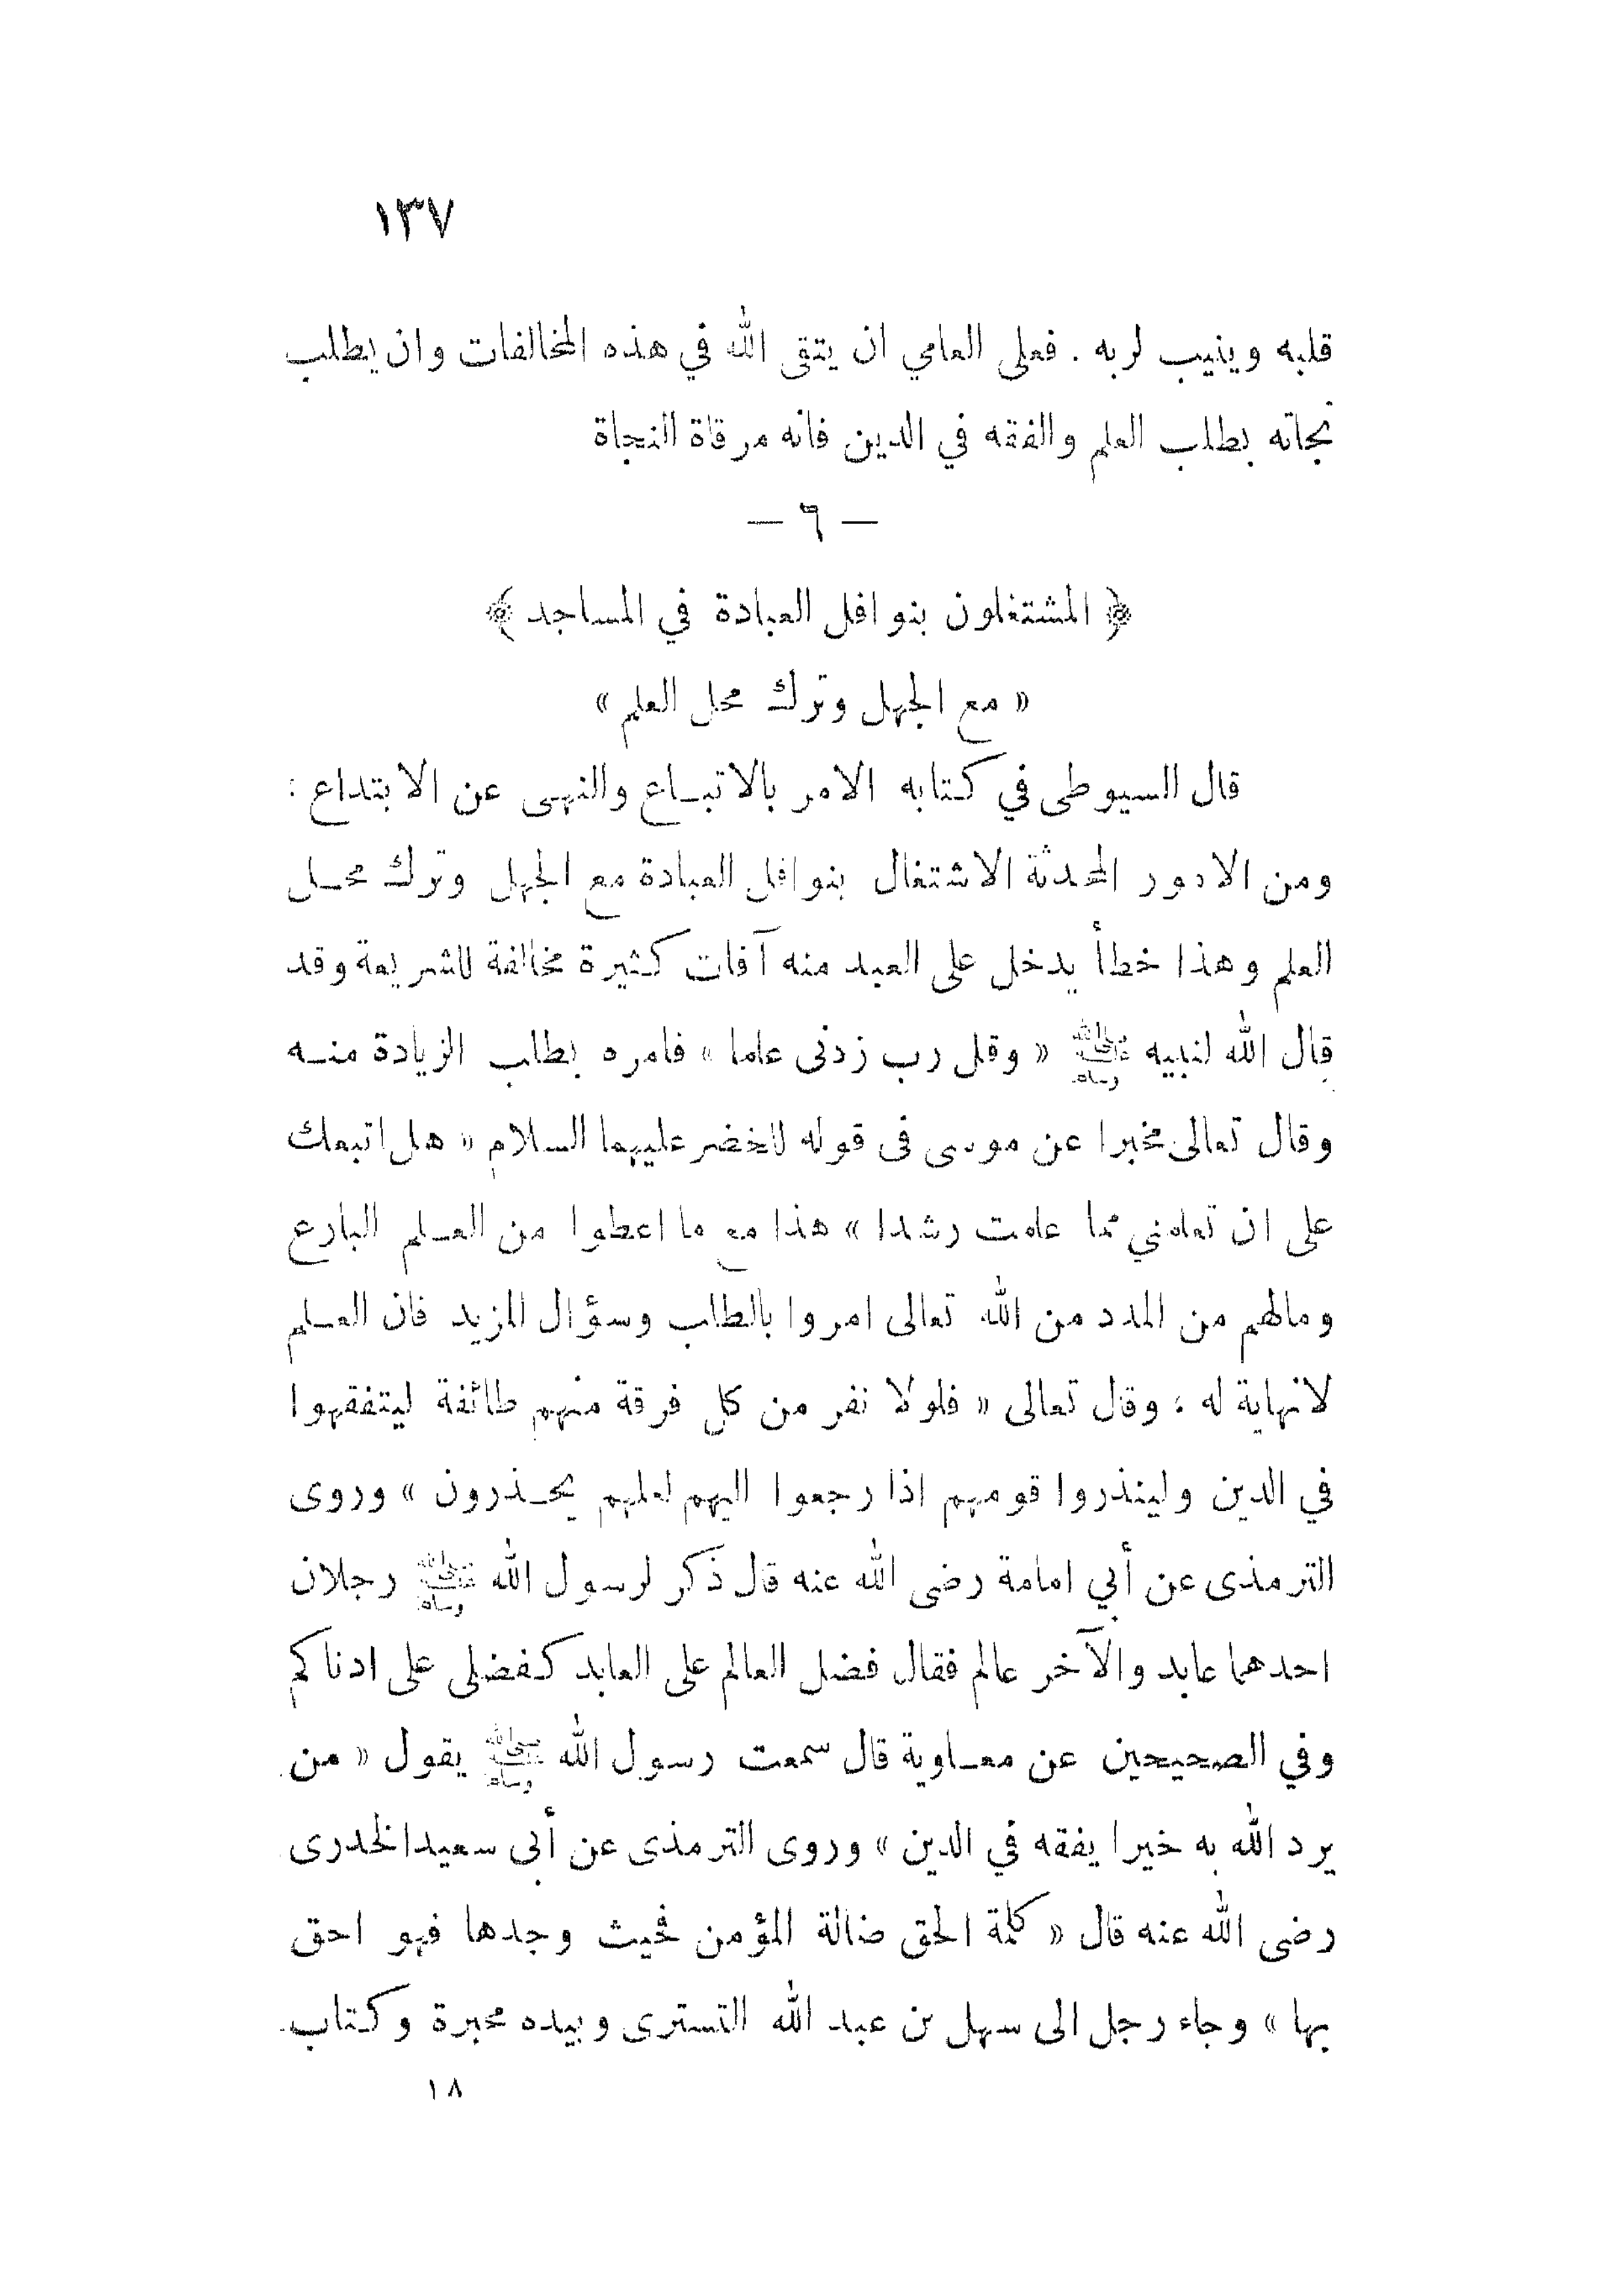 ١٣٧
قلبه وينيب لربه . فعلى العامي ان يتقى الله في هذه المخالفات وان يطلب
نجاته بطلب العلم والفقه في الدين فانه مرقاة النجاة
— ٦ —
﴿ المشتغلون بنوافل العبادة في المساجد ﴾
« مع الجهل وترك محل العلم »
قال السيوطى في كتابه الامر بالاتبـاع والنهى عن الابتداع :
ومن الامور المحدثة الاشتغال بنوافل العبادة مع الجهل وترك محـل
العلم وهذا خطأ يدخل على العبد منه آفات كثيرة مخالفة للشريعة وقد
قال الله لنبيه ﷺ « وقل رب زدنى علما » فامره بطلب الزيادة منـه
وقال تعالى مخبرا عن موسى فى قوله للخضر عليهما السلام « هل اتبعك
على ان تعلمني مما علمت رشدا » هذا مع ما اعطوا من العـلم البارع
ومالهم من المدد من الله تعالى امروا بالطلب وسؤال المزيد فان العـلم
لانهاية له ، وقال تعالى « فلولا نفر من كل فرقة منهم طائفة ليتفقهوا
في الدين ولينذروا قومهم اذا رجعوا اليهم لعلهم يحـذرون » وروى
الترمذى عن أبي امامة رضى الله عنه قال ذكر لرسول الله ﷺ رجلان
احدهما عابد والآخر عالم فقال فضل العالم على العابد كفضلى على ادناكم
وفي الصحيحين عن معـاوية قال سمعت رسول الله ﷺ يقول « من
يرد الله به خيرا يفقه في الدين » وروى الترمذى عن أبى سعيد الخدرى
رضى الله عنه قال « كلمة الحق ضالة المؤمن فحيث وجدها فهو احق
بها » وجاء رجل الى سهل بن عبد الله التسترى وبيده محبرة وكتاب
١٨